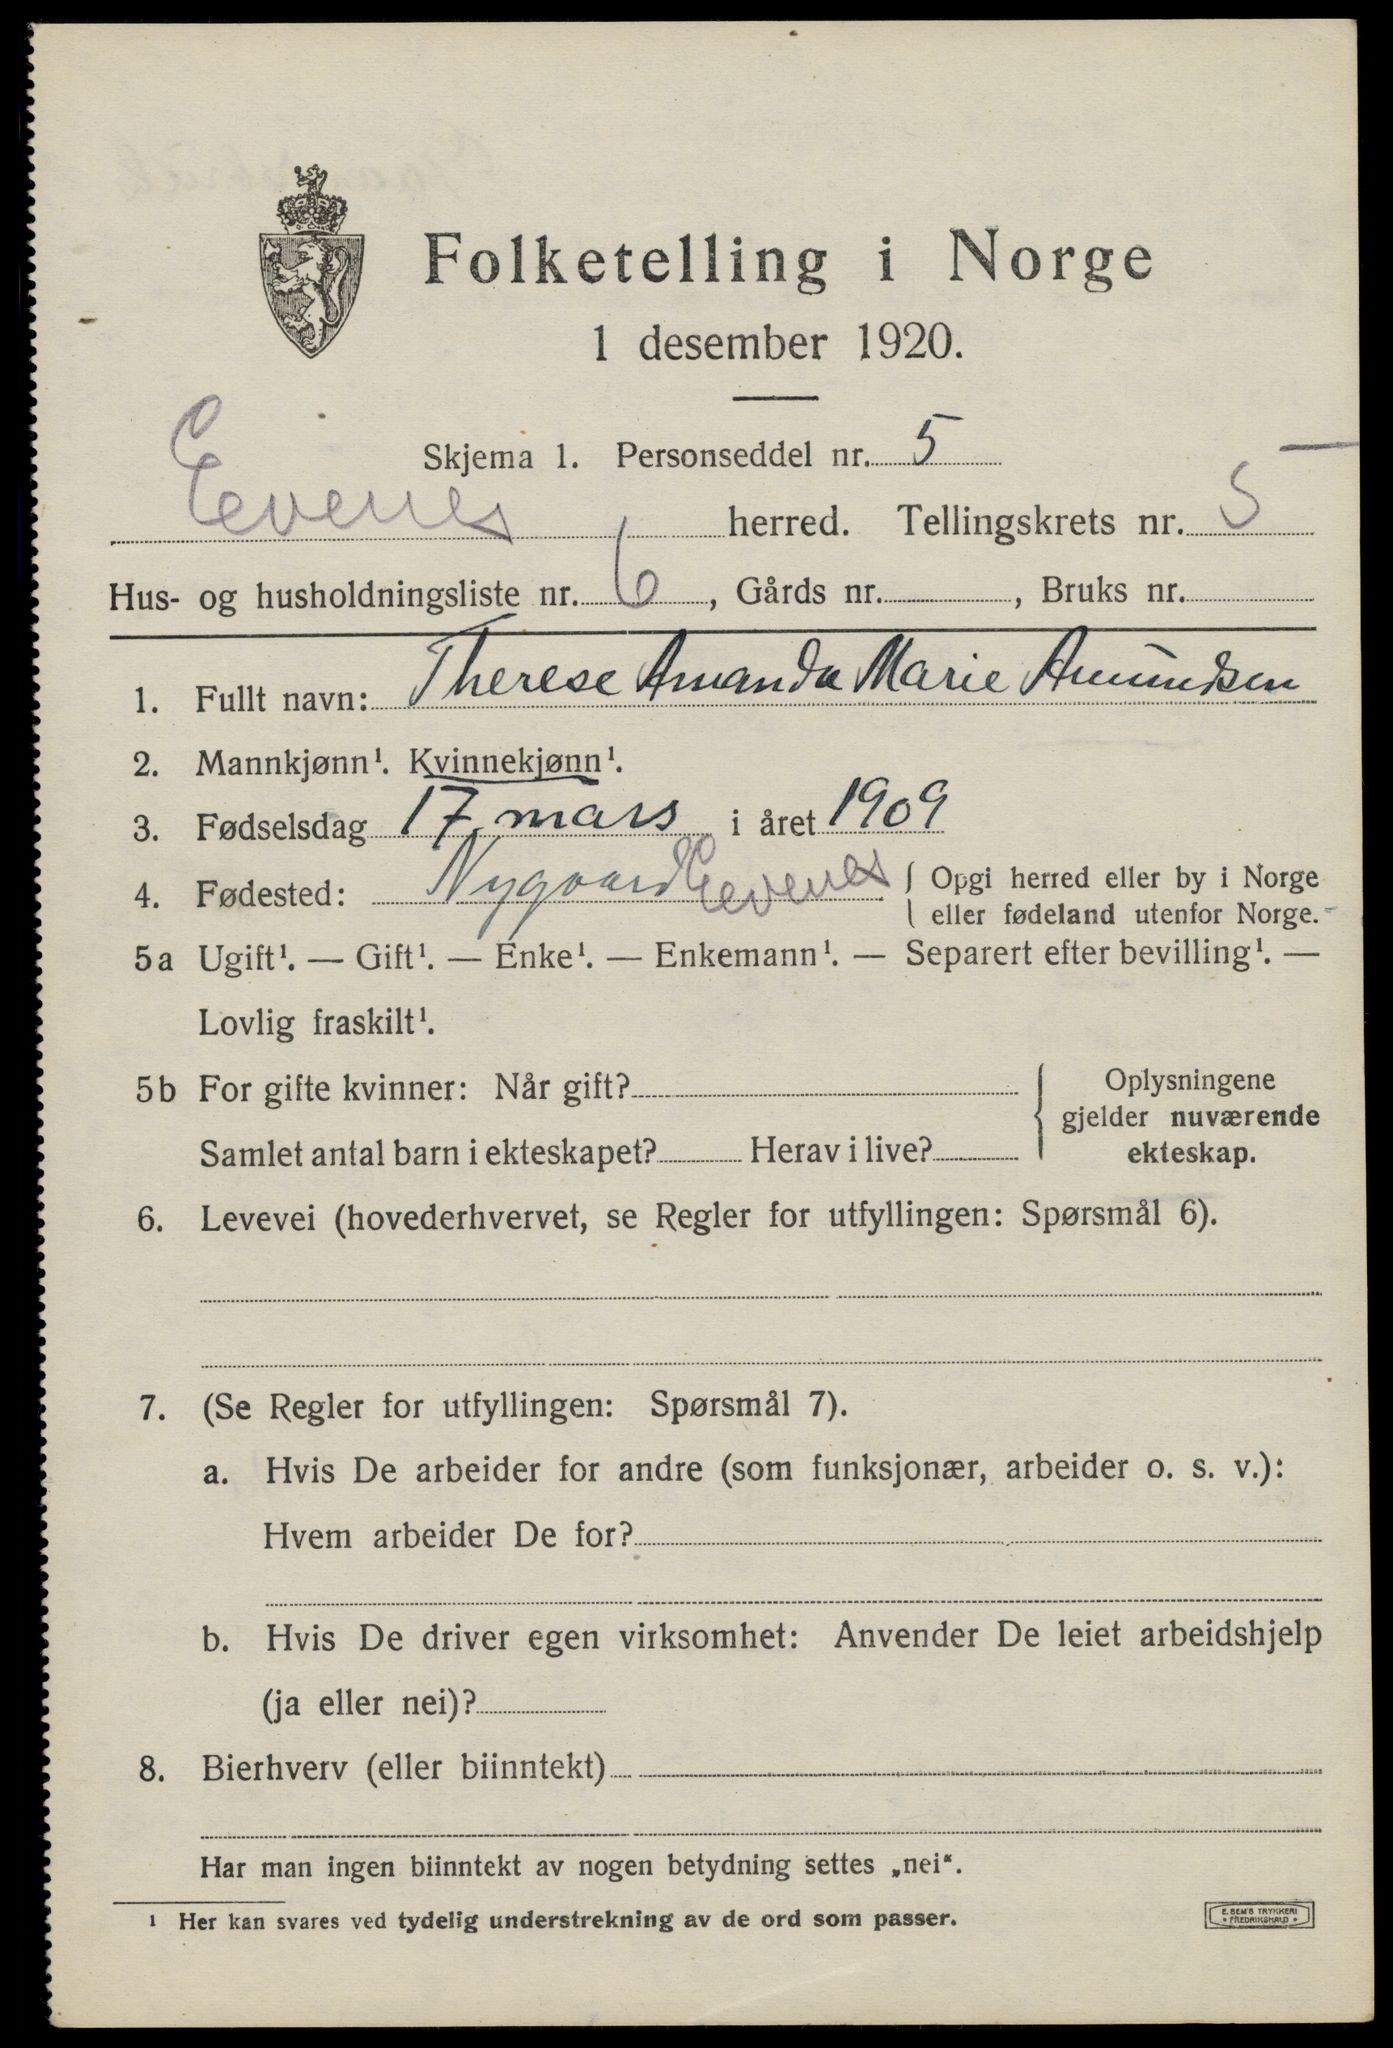 Folketelling i Norge
1 desember 1920.
Skjema 1. Personseddel nr. 5
Evenes herred. Tellingskrets nr. 5
Hus- og husholdningsliste nr. 6, Gårds nr. , Bruks nr.
1. Fullt navn: Therese Amanda Marie Amundsen
2. Mannkjønn¹. Kvinnekjønn¹.
3. Fødselsdag 17 mars i året 1909
4. Fødested: Nygaard Evenes { Opgi herred eller by i Norge
eller fødeland utenfor Norge.
5a Ugift¹. — Gift¹. — Enke¹. — Enkemann¹. — Separert efter bevilling¹. —
Lovlig fraskilt¹.
5b For gifte kvinner: Når gift? { Oplysningene
gjelder nuværende
Samlet antal barn i ekteskapet? Herav i live? ekteskap.
6. Levevei (hovederhvervet, se Regler for utfyllingen: Spørsmål 6).
7. (Se Regler for utfyllingen: Spørsmål 7).
a. Hvis De arbeider for andre (som funksjonær, arbeider o. s. v.):
Hvem arbeider De for?
b. Hvis De driver egen virksomhet: Anvender De leiet arbeidshjelp
(ja eller nei)?
8. Bierhverv (eller biinntekt)
Har man ingen biinntekt av nogen betydning settes „nei“.
¹ Her kan svares ved tydelig understrekning av de ord som passer.
E. SEM'S TRYKKERI
FREDRIKSHALD